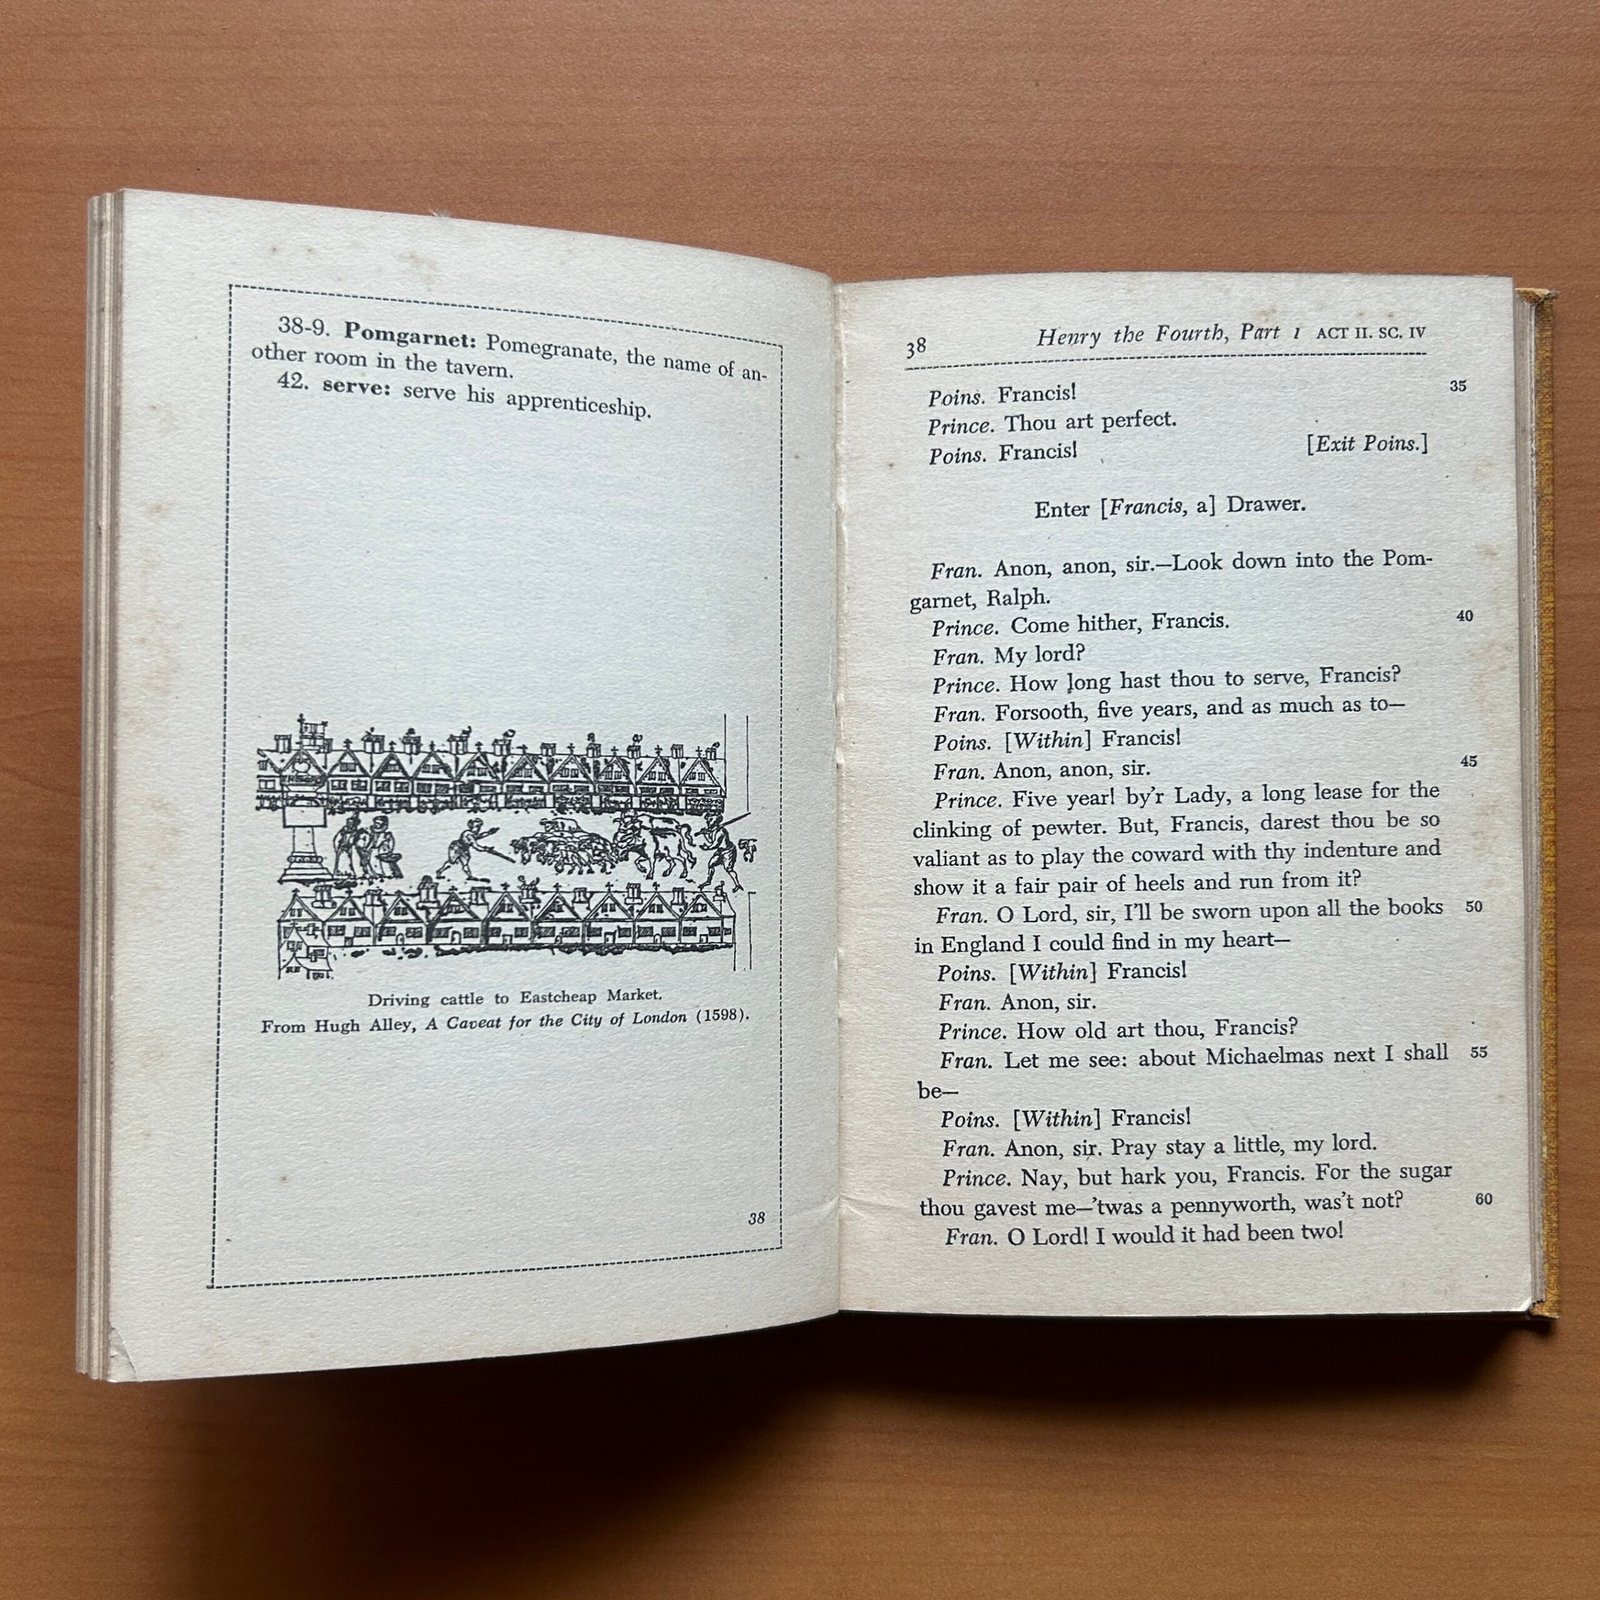 38-9. Pomgarnet: Pomegranate, the name of an-
other room in the tavern.
42. serve: serve his apprenticeship.
Driving cattle to Eastcheap Market.
From Hugh Alley, A Caveat for the City of London (1598).
38
38 Henry the Fourth, Part 1 ACT II. SC. IV
Poins. Francis! 35
Prince. Thou art perfect.
Poins. Francis! [Exit Poins.]
Enter [Francis, a] Drawer.
Fran. Anon, anon, sir.—Look down into the Pom-
garnet, Ralph.
Prince. Come hither, Francis. 40
Fran. My lord?
Prince. How long hast thou to serve, Francis?
Fran. Forsooth, five years, and as much as to—
Poins. [Within] Francis!
Fran. Anon, anon, sir. 45
Prince. Five year! by'r Lady, a long lease for the
clinking of pewter. But, Francis, darest thou be so
valiant as to play the coward with thy indenture and
show it a fair pair of heels and run from it?
Fran. O Lord, sir, I'll be sworn upon all the books 50
in England I could find in my heart—
Poins. [Within] Francis!
Fran. Anon, sir.
Prince. How old art thou, Francis?
Fran. Let me see: about Michaelmas next I shall 55
be—
Poins. [Within] Francis!
Fran. Anon, sir. Pray stay a little, my lord.
Prince. Nay, but hark you, Francis. For the sugar
thou gavest me—'twas a pennyworth, was't not? 60
Fran. O Lord! I would it had been two!